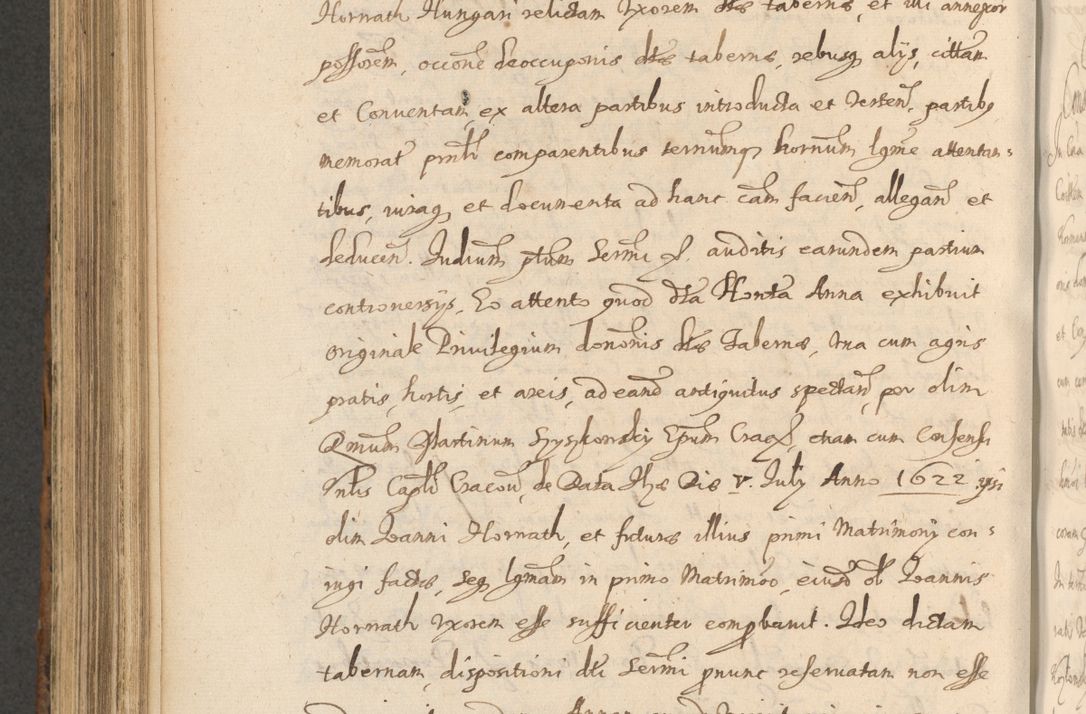 Hornath Hungari relictam Uxorem dtæ tabernæ, et illi annexor
possorem, occone deoccuponis dtæ tabernæ, rebusq alijs, cittam
et Conuentam, ex altera partibus introducta et vertent, partib9
memorat pntli comparentibus terminumq hornum lgme attentan=
tibus, iuraq et documenta ad hanc cam facien, allegan et
deducen. Iudium ptum Sermi D. auditis earundem partium
controuersijs, Eo attento quod dta Honta Anna exhibuit
originale Priuilegium dononis dtæ Tabernæ, Una cum agris
pratis, hortis, et areis, ad eand antiquitus spectan, por olim
Rmum Martinum Szyszkowsky Epum Crac, etiam cum Consensu
Vnlis Capli Cracou, de Data Ibe Die V. July Anno 1622 ipsi
olim Ioanni Hornath, et futuræ illius primi Matrimonij con=
iugi factæ, seq lgmam in primo Matrimoo, eiusd ol Ioannis
Hornath Uxorem esse sufficienter comprobauit. Ideo dictam
tabernam, dispositioni dti Sermi pnunc reseruatam non esse